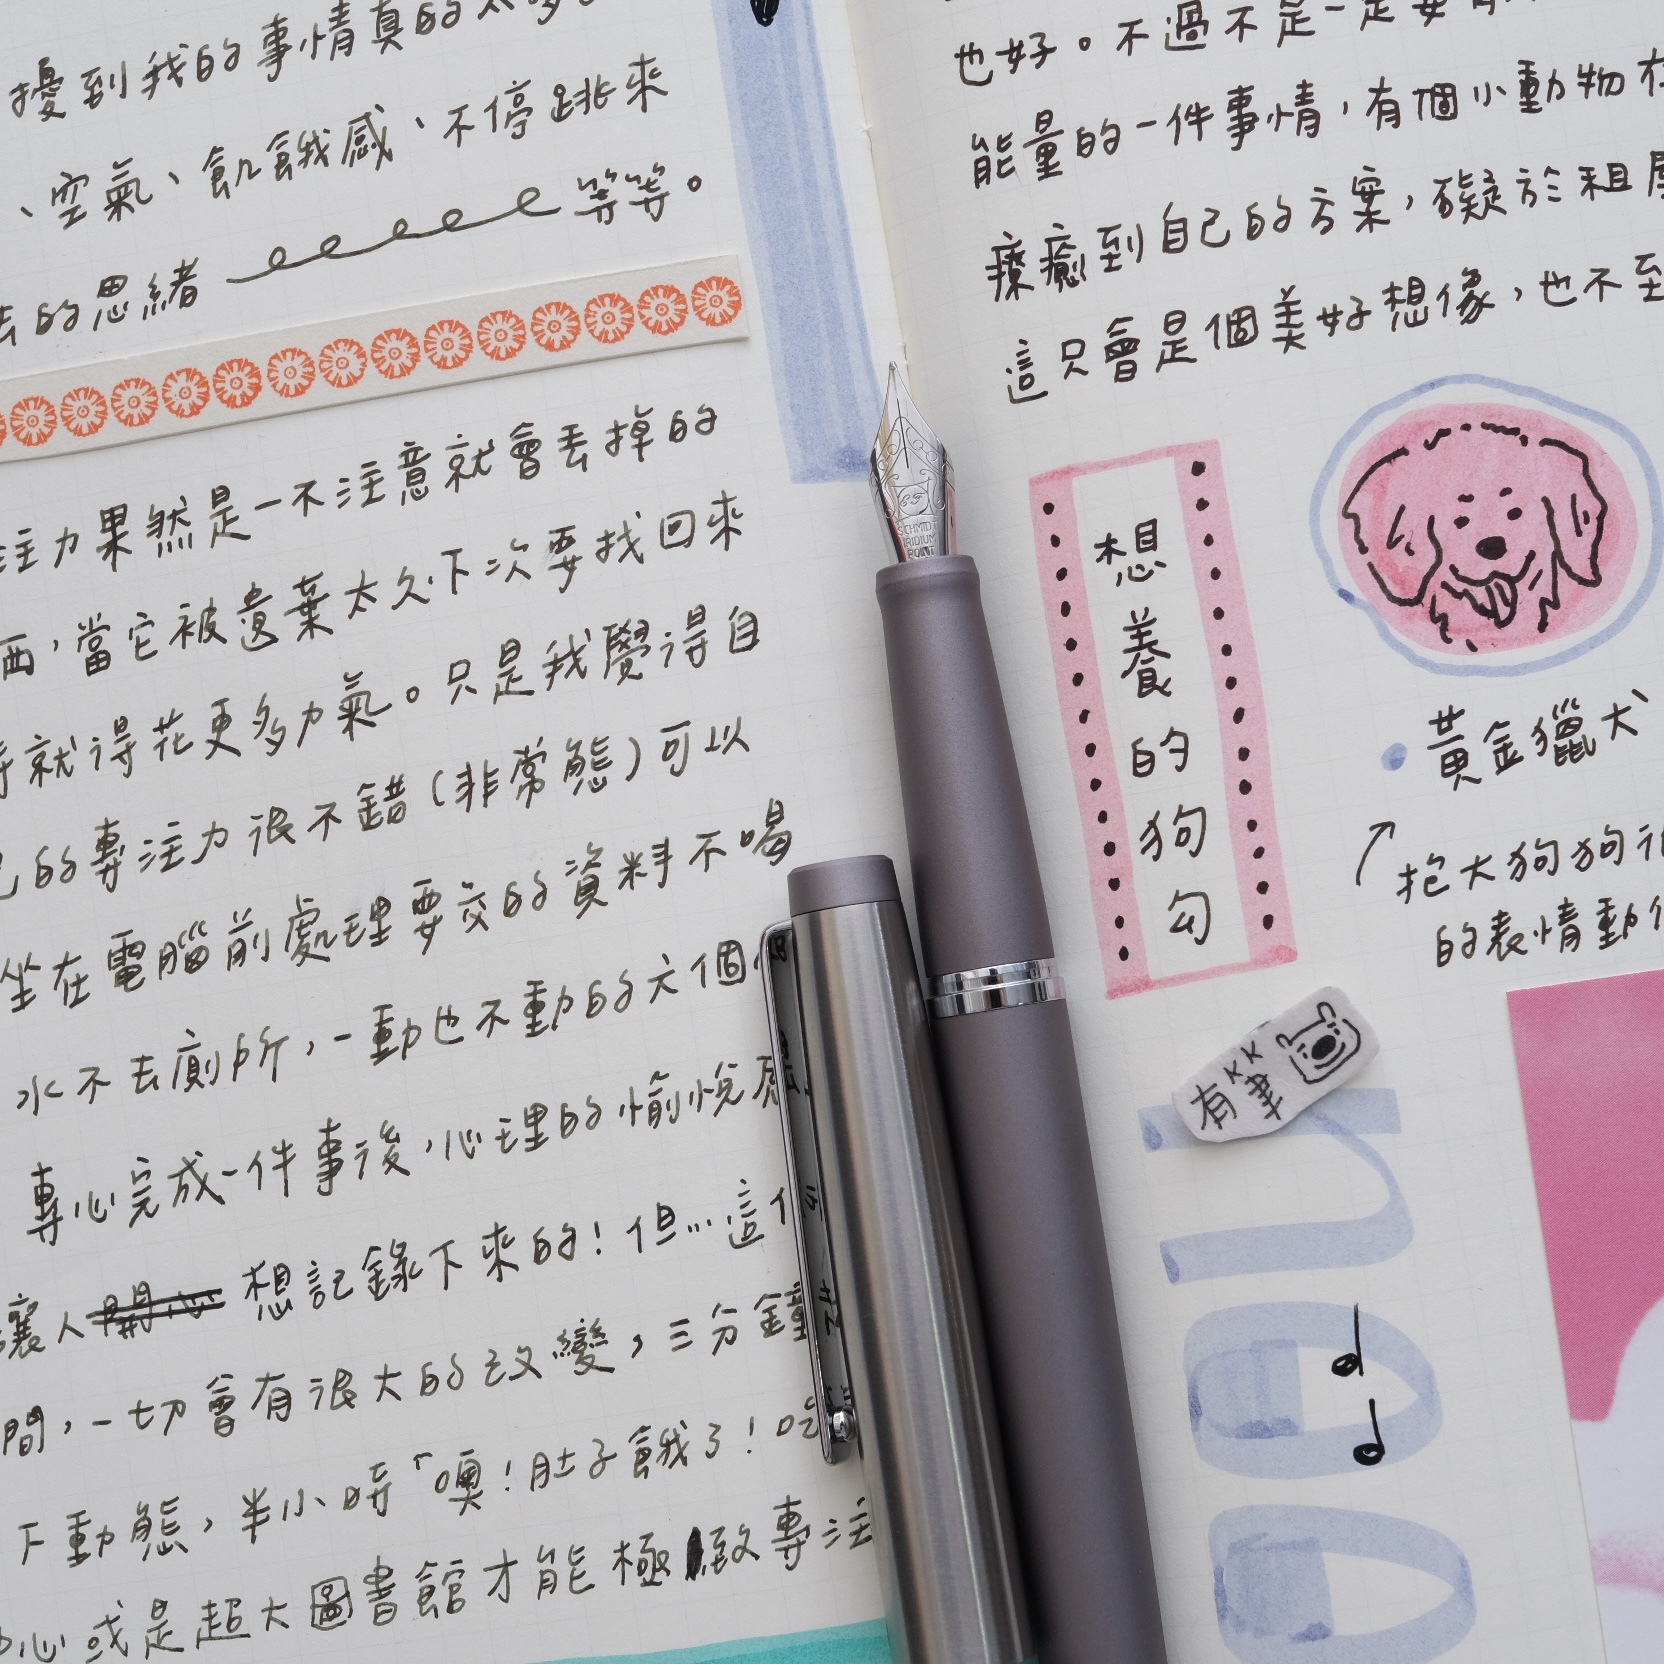 擾到我的事情真的太多
、空氣、飢餓感、不停跳來
的思緒 等等。
注力果然是一不注意就會丟掉的
西，當它被遺棄太久下次要找回來
時就得花更多力氣。只是我覺得自
己的專注力很不錯(非常態)可以
坐在電腦前處理要交的資料不喝
水不去廁所，一動也不動的六個
專心完成一件事後，心理的愉悅感
讓人開心想記錄下來的！但…這
間，一切會有很大的改變，三分鐘
下動態，半小時「噢！肚子餓了！吃
心或是超大圖書館才能極致專注
也好。不過不是一定要有
能量的一件事情，有個小動物在
療癒到自己的方案，礙於租屋
這只會是個美好想像，也不至
想養的狗勾
黃金獵犬
抱大狗狗
的表情動作
有筆KK
SCHMIDT
IRIDIUM
POINT